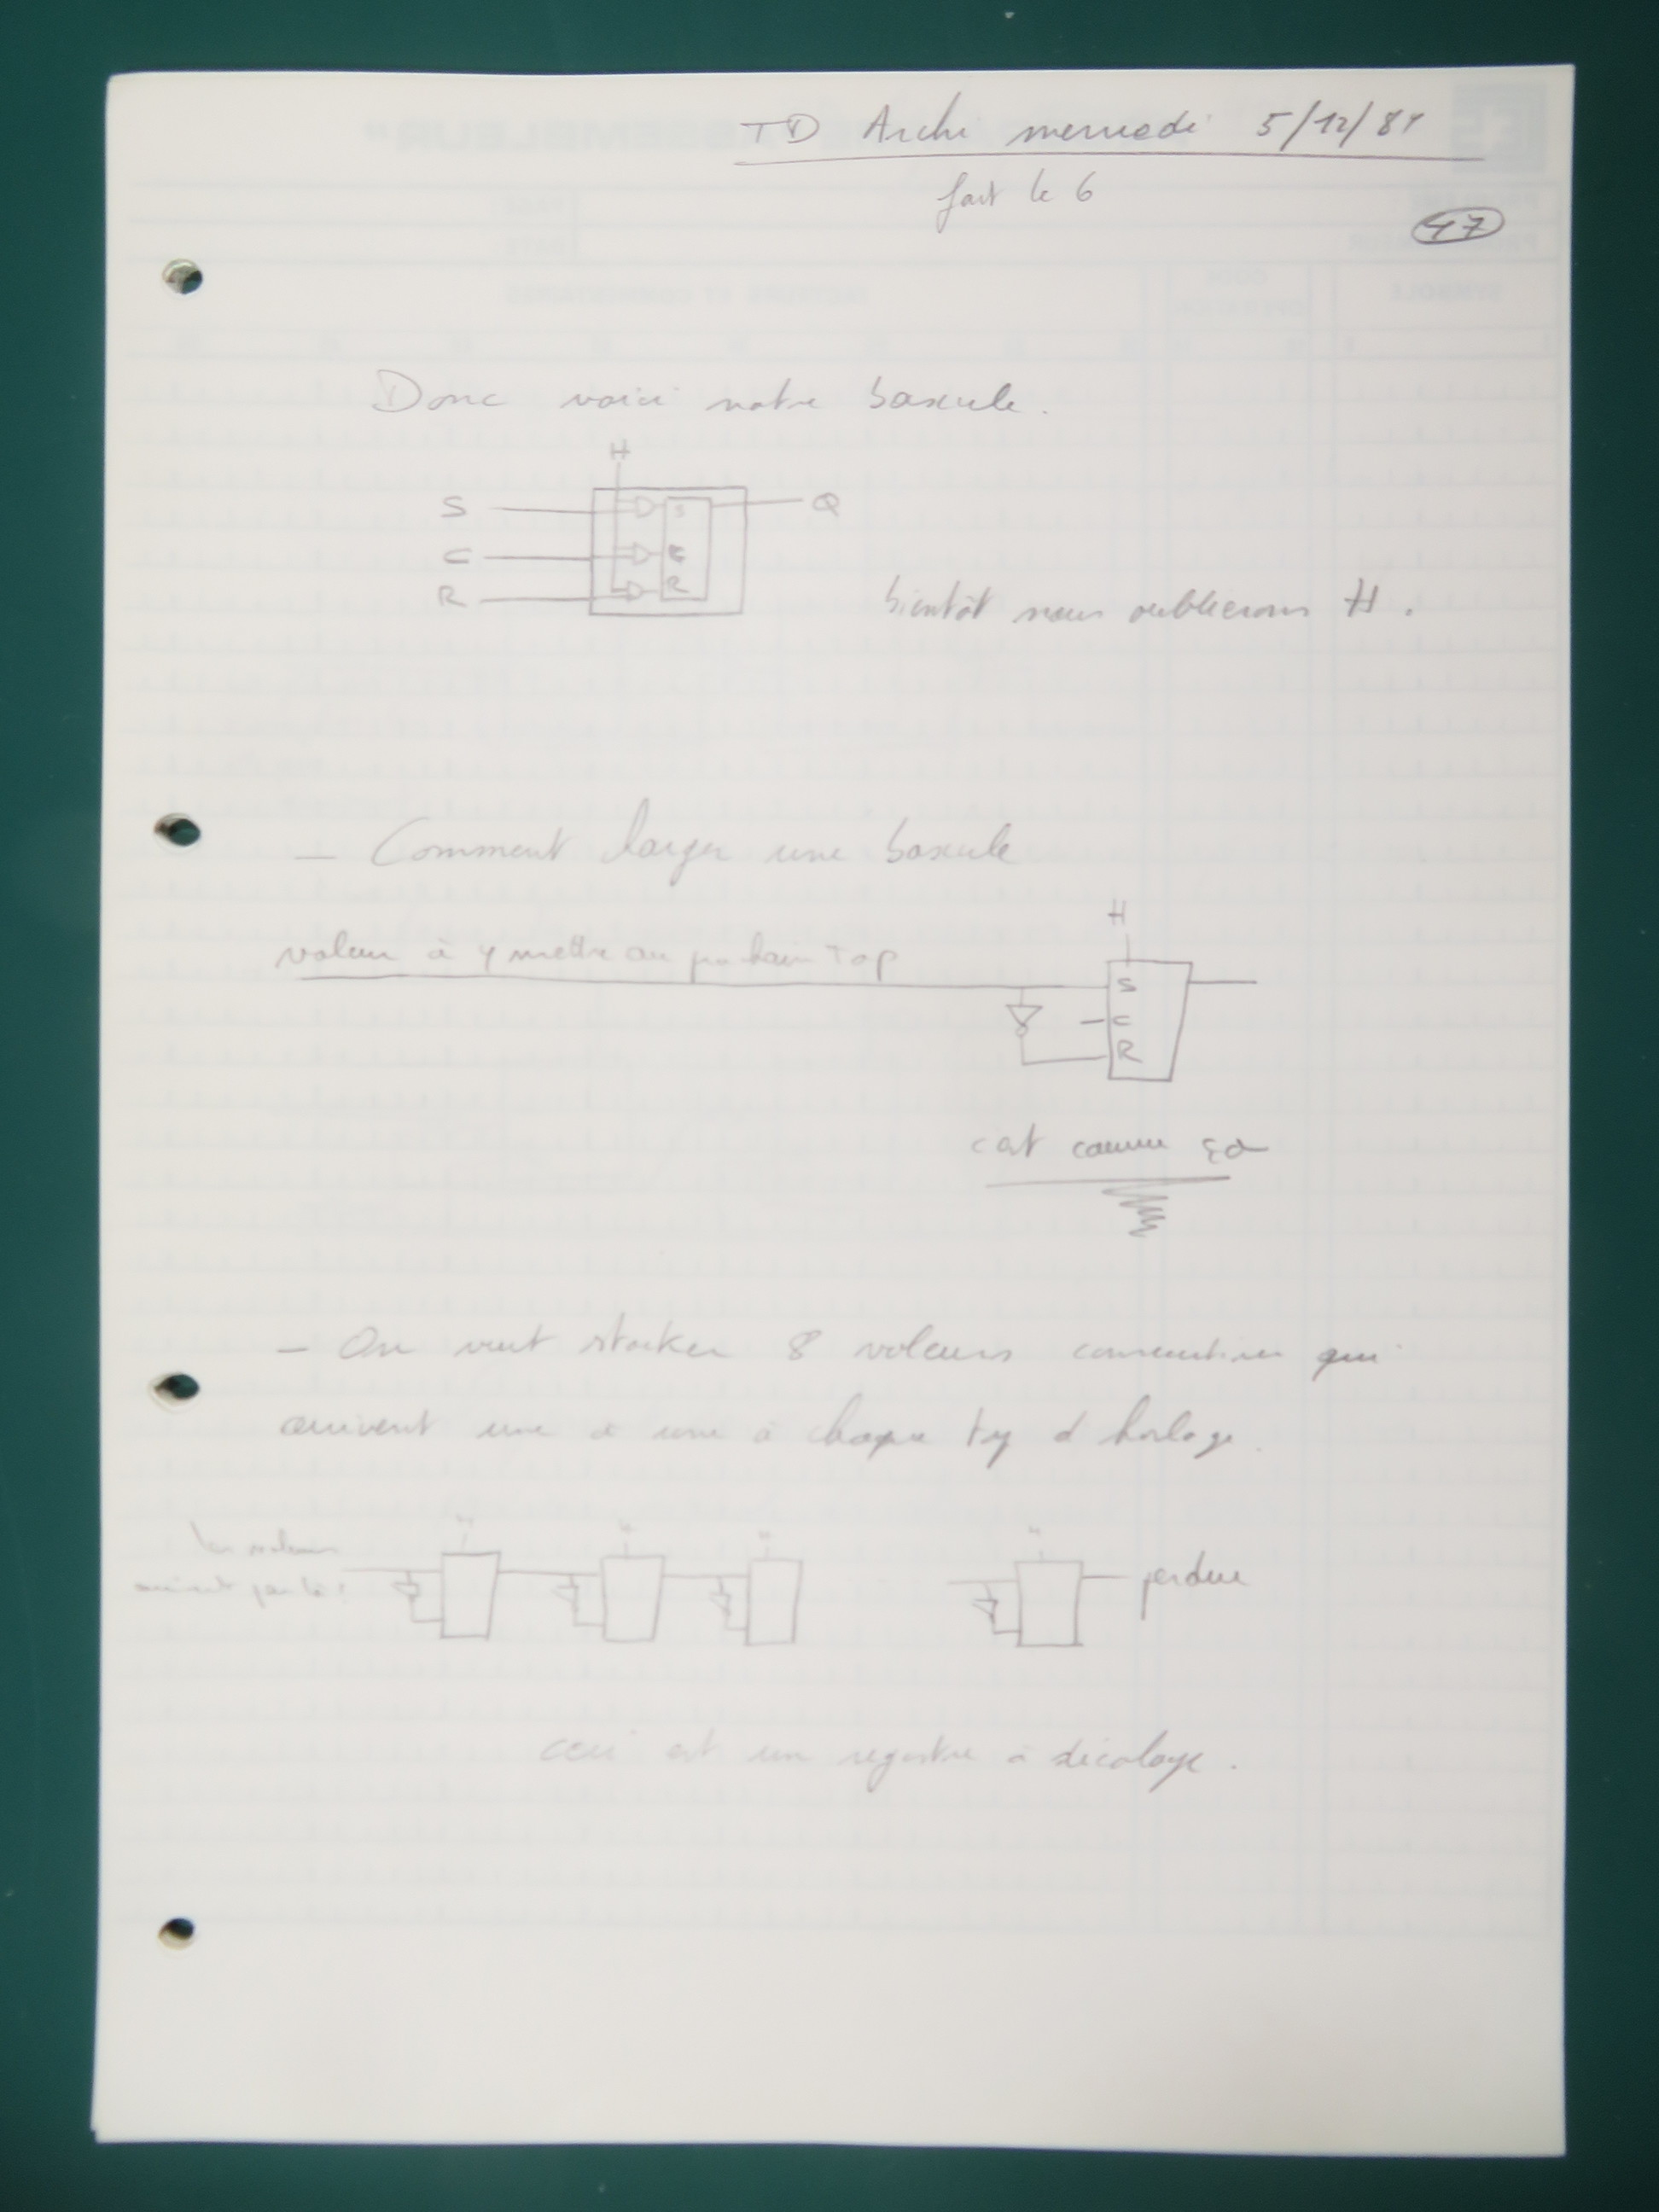 TD Archi mercredi 5/12/84
fait le 6
47
Donc voici notre bascule.
H
S
S
Q
C
C
R
R
bientôt nous oublierons H.
— Comment charger une bascule
H
valeur à y mettre au prochain Top
S
C
R
c'est comme ça
— On veut stocker 8 valeurs consecutives qui
arrivent une à une à chaque top d'horloge.
H
H
H
H
les valeurs
arrivent par là
perdue
ceci est un registre à décalage.